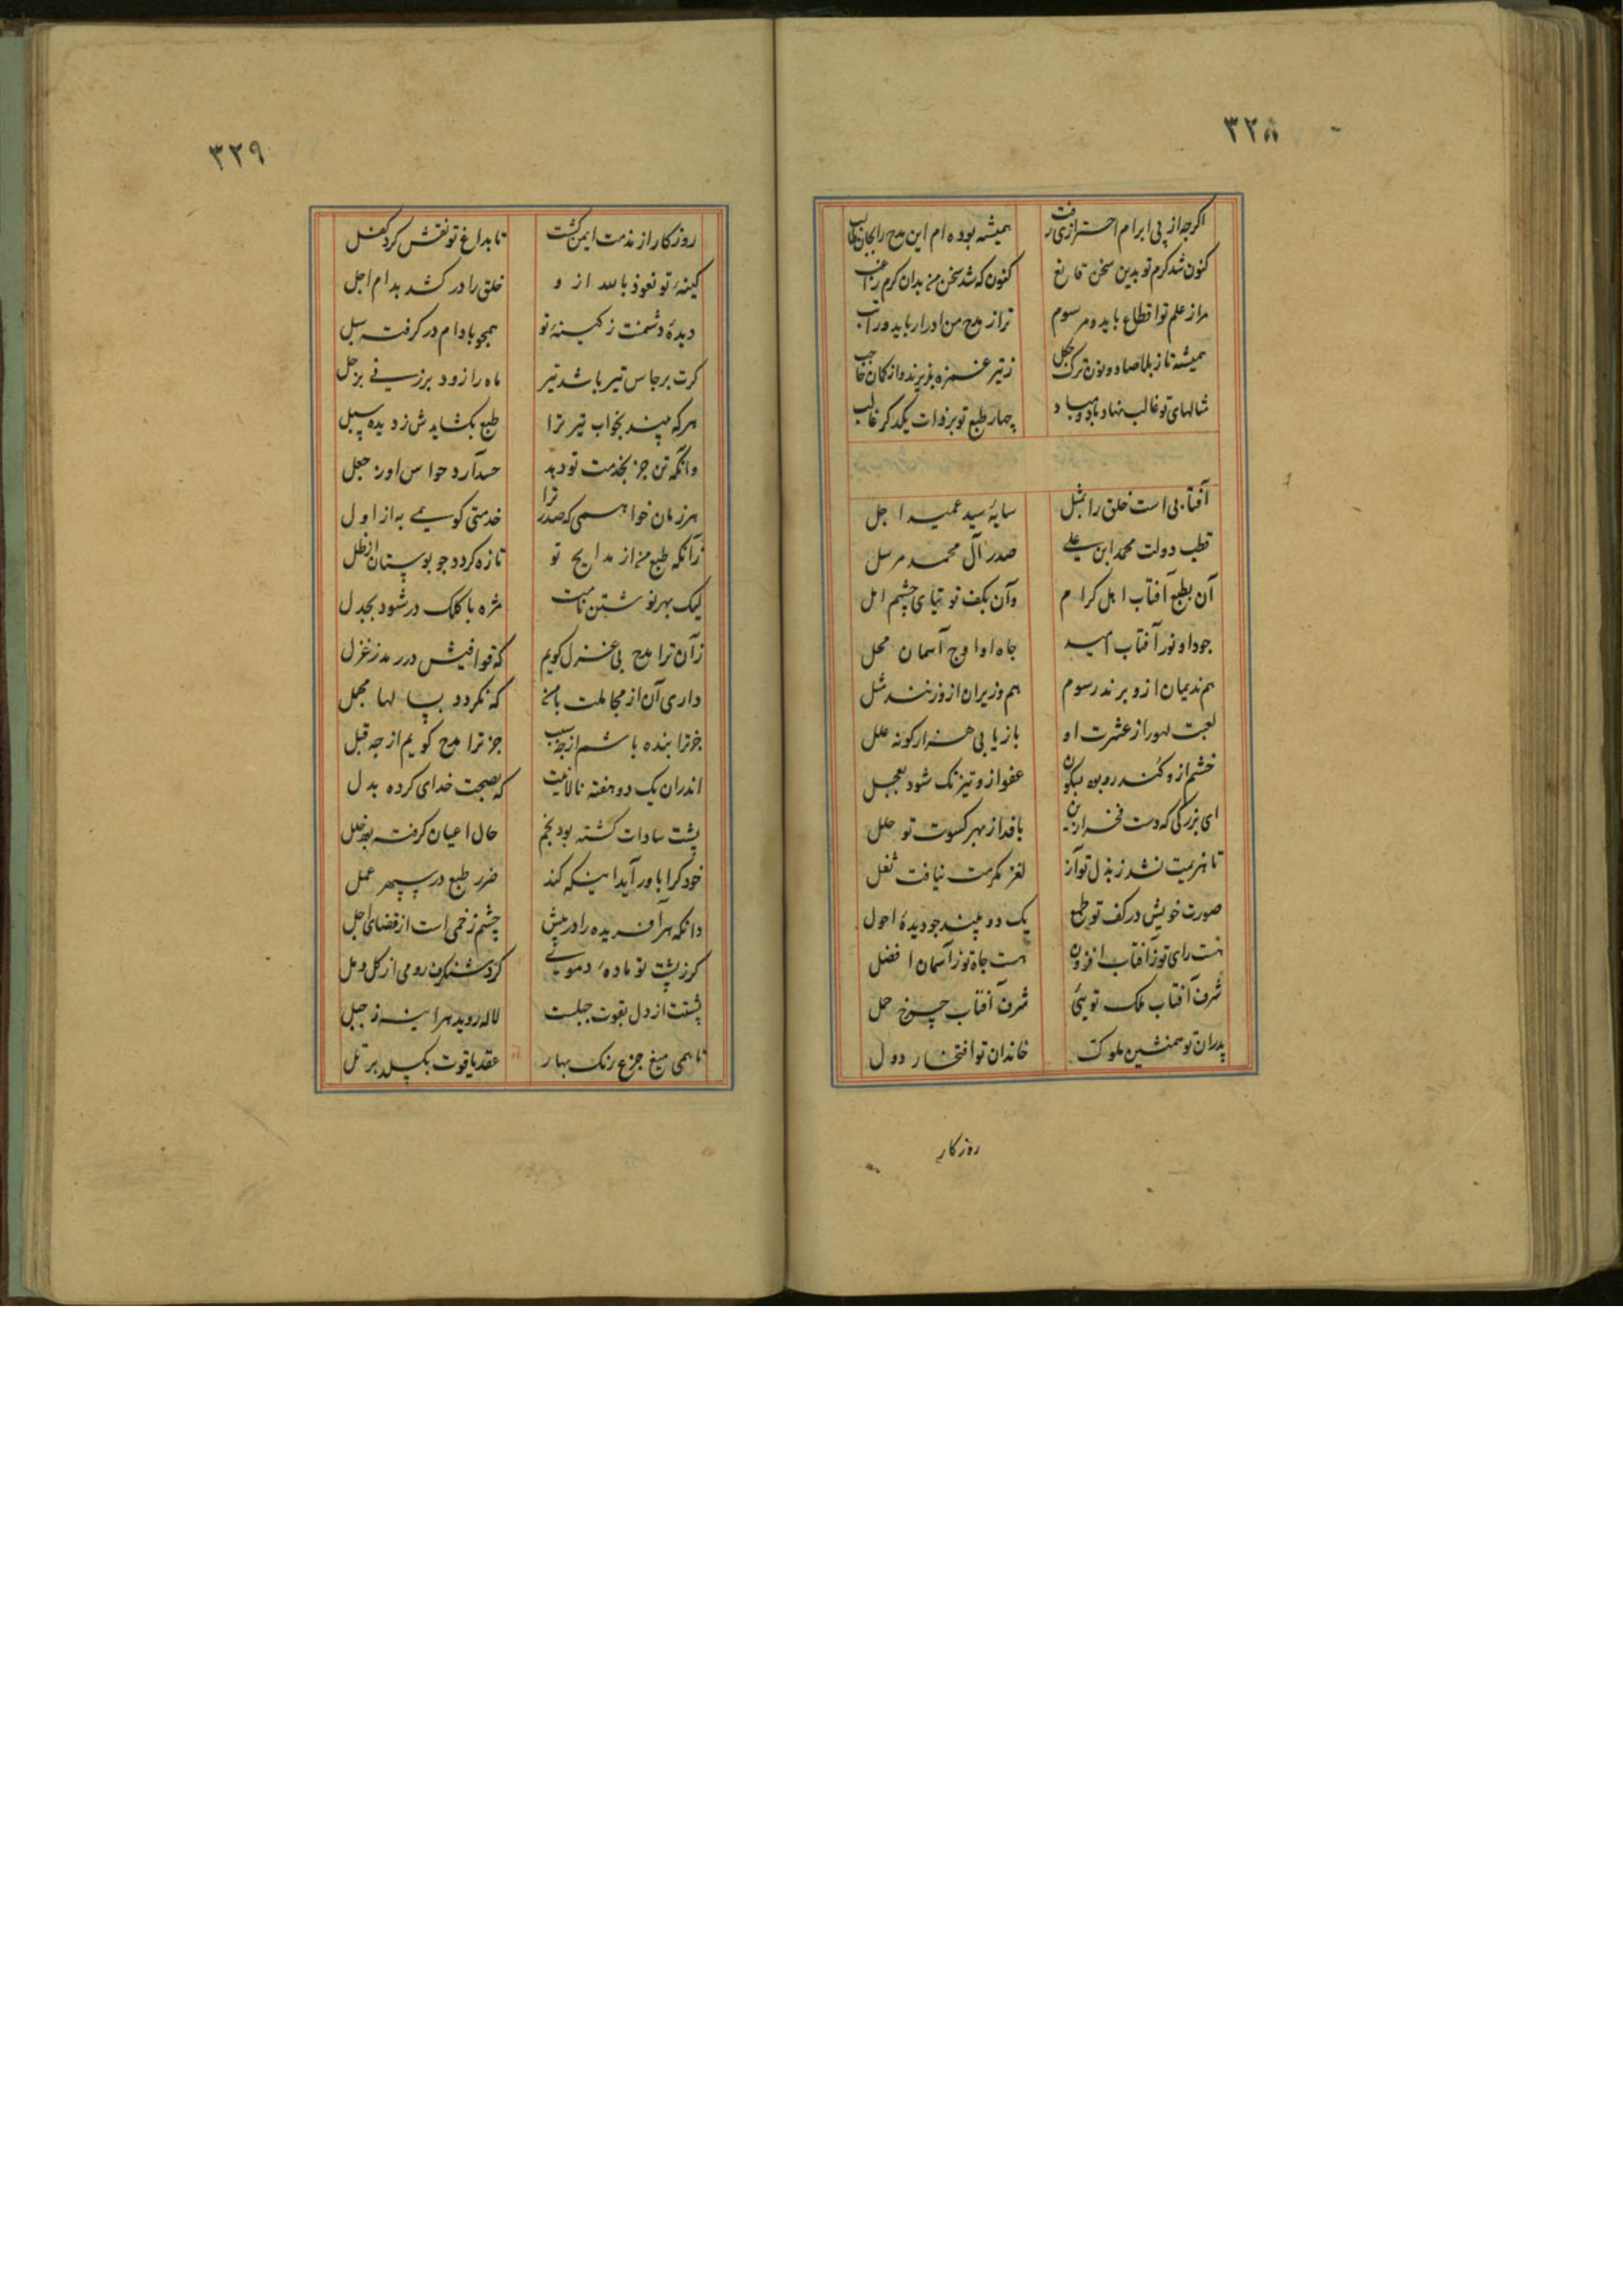 ۳۲۸
اکرچه از پی ابرام احترازی رفت همیشه بوده ام این مدح را بجان طالب
کنون شد کرم تو بدین سخن قانع کنون که شد سخن من بدان کرم راغب
مرا ز علم تو اقطاع باید و مرسوم ترا ز مدح من ادرار باید و راتب
همیشه تا ز بلا صاد و نون ترک چکل ز تیر غمزه پذیرند و از کمان حاجب
شالهای تو غالب نهاد باد و مباد چهار طبع تو بر ذات یکدکر غالب
آفتابی است خلق را بمثل سایهٔ سید عمید اجل
قطب دولت محمد ابن علی صدر آل محمد مرسل
آن بطبع آفتاب اهل کرام وآن بکف توتیای چشم امل
جود او نور آفتاب امید جاه او اوج آسمان محل
هم ندیمان ازو برند رسوم هم وزیران ازو زنند مثل
لعبت لهو را ز عشرت او بازیابی هزار کونه علل
خشم ازو کند رو بود بسکون عفو ازو تیزتک شود بعجل
ای بزرکی که دست فخر ازین بافد از مهر کسوت تو حلل
تا هزیمت نشد ز بذل تو آز لغز مکرمت نیافت
صورت خویش در کف تو طمع یک دو بیند چو دیدهٔ احول
هست رای تو ز آفتاب افزون هست جاه تو ز آسمان افضل
شرف آفتاب ملک توئی شرف آفتاب چرخ حمل
پدران تو همنشین ملوک خاندان تو افتخار دول
روزکار
۳۲۹
روزکار از مذمت ایمن کشت تا بداغ تو نقش کرد کفل
کینهٔ تو نعوذ بالله از و خلق را در کشد بدام اجل
دیدهٔ دشمنت ز کینهٔ تو همچو بادام در کرفت سبل
کرت برجاس تیر باشد تیر ماه را زود بر زنی بزحل
هرکه بیند بخواب تیر ترا طبع بکشایدش ز دیده سبل
وانکه تن جز بخدمت تو دهد حواس او
هر زمان خواهمی که صدر ترا خدمتی کویمی به از اول
زآنکه طبع من از مدایح تو تازه کردد چو بوستان از طل
لیک بهر نوشتن نامت مژه با کلک در شود بجدل
زآن ترا مدح بی غزل کویم که قوافیش در رمد ز غزل
داری آن از مجاملت با من که نکردد بسالها مجمل
جز ترا بنده باشم از چه سبب جز ترا مدح کویم از چه قبل
اندران یک دو هفته نالانیت که بصحت خدای کرده بدل
پشت سادات کشته بود بخم حال اعیان کرفته بود خلل
خود کرا باور آید اینکه کند ضرر طبع در سپهر عمل
دانکه هر آفریده را در پیش چشم زخمی است از قضای اجل
کر ز پشت تو مادهٔ دموی کرد شنکرف رومی از کل و مل
پشتت از دل بقوت جبلست لاله روید هر آینه ز جبل
تا همی میغ جزع رنک بهار عقد یاقوت بکسلد بر تل